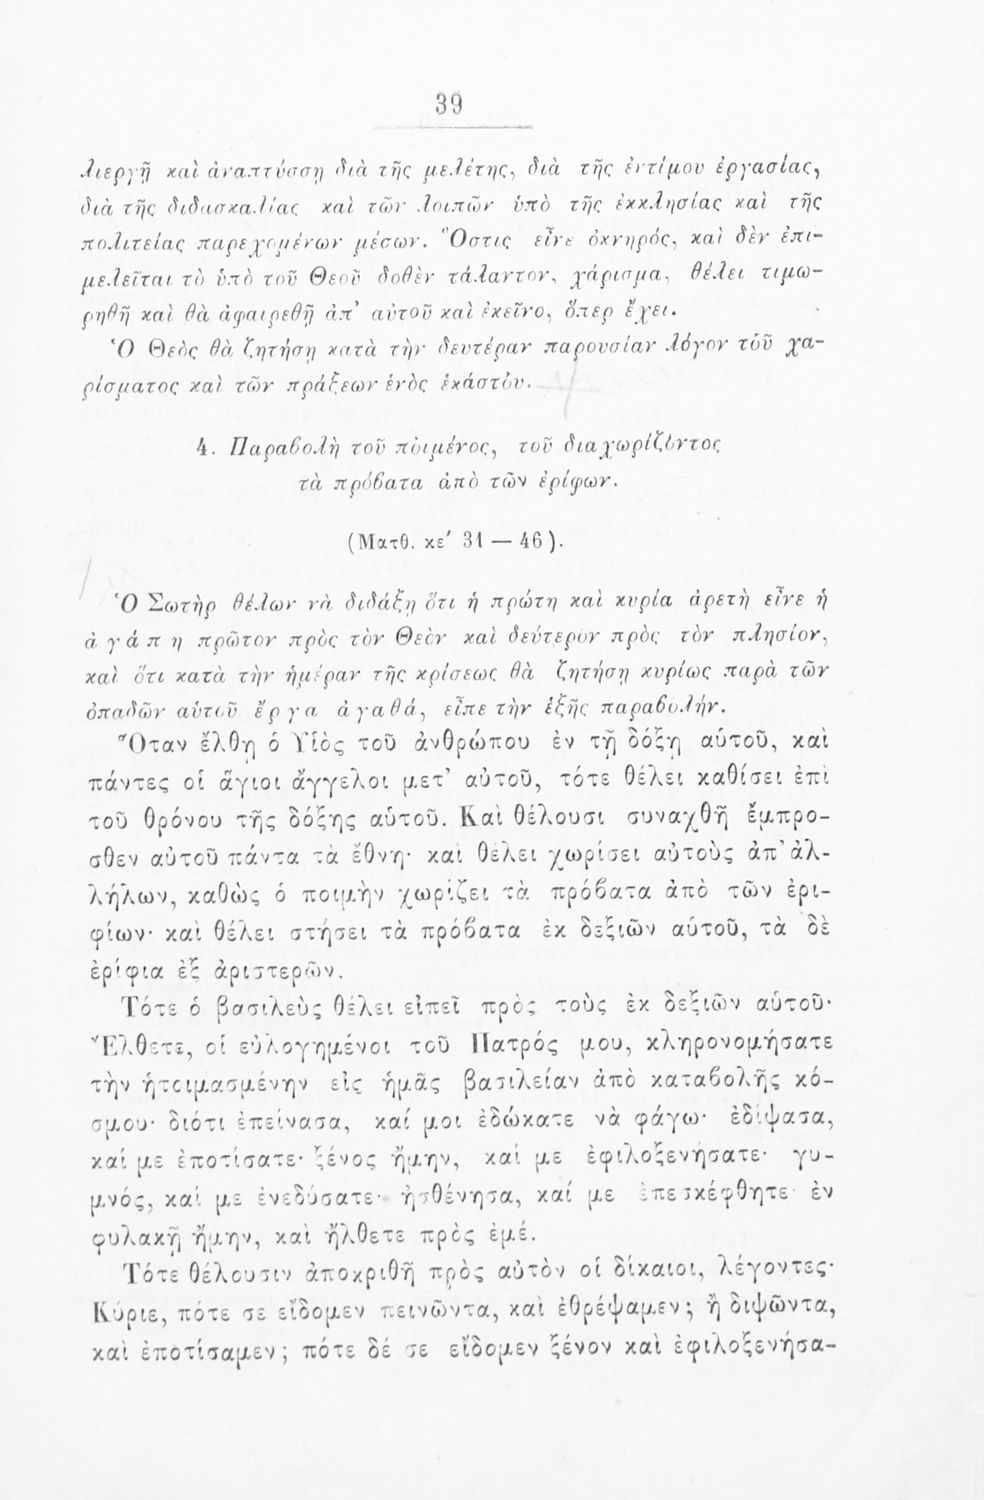 39
λιεργῇ καὶ ἀναπτύσσῃ διὰ τῆς μελέτης, διὰ τῆς ἐντίμου ἐργασίας,
διὰ τῆς διδασκαλίας καὶ τῶν λοιπῶν ὑπὸ τῆς ἐκκλησίας καὶ τῆς
πολιτείας παρεχομένων μέσων. Ὅστις εἶνε ὀκνηρός, καὶ δὲν ἐπι-
μελεῖται τὸ ὑπὸ τοῦ Θεοῦ δοθὲν τάλαντον, χάρισμα, θέλει τιμω-
ρηθῆ καὶ θὰ ἀφαιρεθῇ ἀπ' αὐτοῦ καὶ ἐκεῖνο, ὅπερ ἔχει.
Ὁ Θεὸς θὰ ζητήσῃ κατὰ τὴν δευτέραν παρουσίαν λόγον τοῦ χα-
ρίσματος καὶ τῶν πράξεων ἑνὸς ἑκάστου.
4. Παραβολὴ τοῦ ποιμένος, τοῦ διαχωρίζοντος
τὰ πρόβατα ἀπὸ τῶν ἐρίφων.
(Ματθ. κε' 31 — 46).
Ὁ Σωτὴρ θέλων νὰ διδάξῃ ὅτι ἡ πρώτη καὶ κυρία ἀρετὴ εἶνε ἡ
ἀγάπη πρῶτον πρὸς τὸν Θεὸν καὶ δεύτερον πρὸς τὸν πλησίον,
καὶ ὅτι κατὰ τὴν ἡμέραν τῆς κρίσεως θὰ ζητήσῃ κυρίως παρὰ τῶν
ὀπαδῶν αὑτοῦ ἔργα ἀγαθά, εἶπε τὴν ἑξῆς παραβολήν.
"Ὅταν ἔλθῃ ὁ Υἱὸς τοῦ ἀνθρώπου ἐν τῇ δόξῃ αὑτοῦ, καὶ
πάντες οἱ ἅγιοι ἄγγελοι μετ' αὐτοῦ, τότε θέλει καθίσει ἐπὶ
τοῦ θρόνου τῆς δόξης αὑτοῦ. Καὶ θέλουσι συναχθῆ ἔμπρο-
σθεν αὐτοῦ πάντα τὰ ἔθνη· καὶ θέλει χωρίσει αὐτοὺς ἀπ' ἀλ-
λήλων, καθὼς ὁ ποιμὴν χωρίζει τὰ πρόβατα ἀπὸ τῶν ἐρι-
φίων· καὶ θέλει στήσει τὰ πρόβατα ἐκ δεξιῶν αὑτοῦ, τὰ δὲ
ἐρίφια ἐξ ἀριστερῶν.
Τότε ὁ βασιλεὺς θέλει εἰπεῖ πρὸς τοὺς ἐκ δεξιῶν αὑτοῦ·
Ἔλθετε, οἱ εὐλογημένοι τοῦ Πατρός μου, κληρονομήσατε
τὴν ἡτοιμασμένην εἰς ἡμᾶς βασιλείαν ἀπὸ καταβολῆς κό-
σμου· διότι ἐπείνασα, καί μοι ἐδώκατε νὰ φάγω· ἐδίψασα,
καί με ἐποτίσατε· ξένος ἤμην, καί με ἐφιλοξενήσατε· γυ-
μνός, καί με ἐνεδύσατε· ἠσθένησα, καί με ἐπεσκέφθητε· ἐν
φυλακῇ ἤμην, καὶ ἤλθετε πρὸς ἐμέ.
Τότε θέλουσιν ἀποκριθῆ πρὸς αὐτὸν οἱ δίκαιοι, λέγοντες·
Κύριε, πότε σε εἴδομεν πεινῶντα, καὶ ἐθρέψαμεν; ἢ διψῶντα,
καὶ ἐποτίσαμεν; πότε δέ σε εἴδομεν ξένον καὶ ἐφιλοξενήσα-